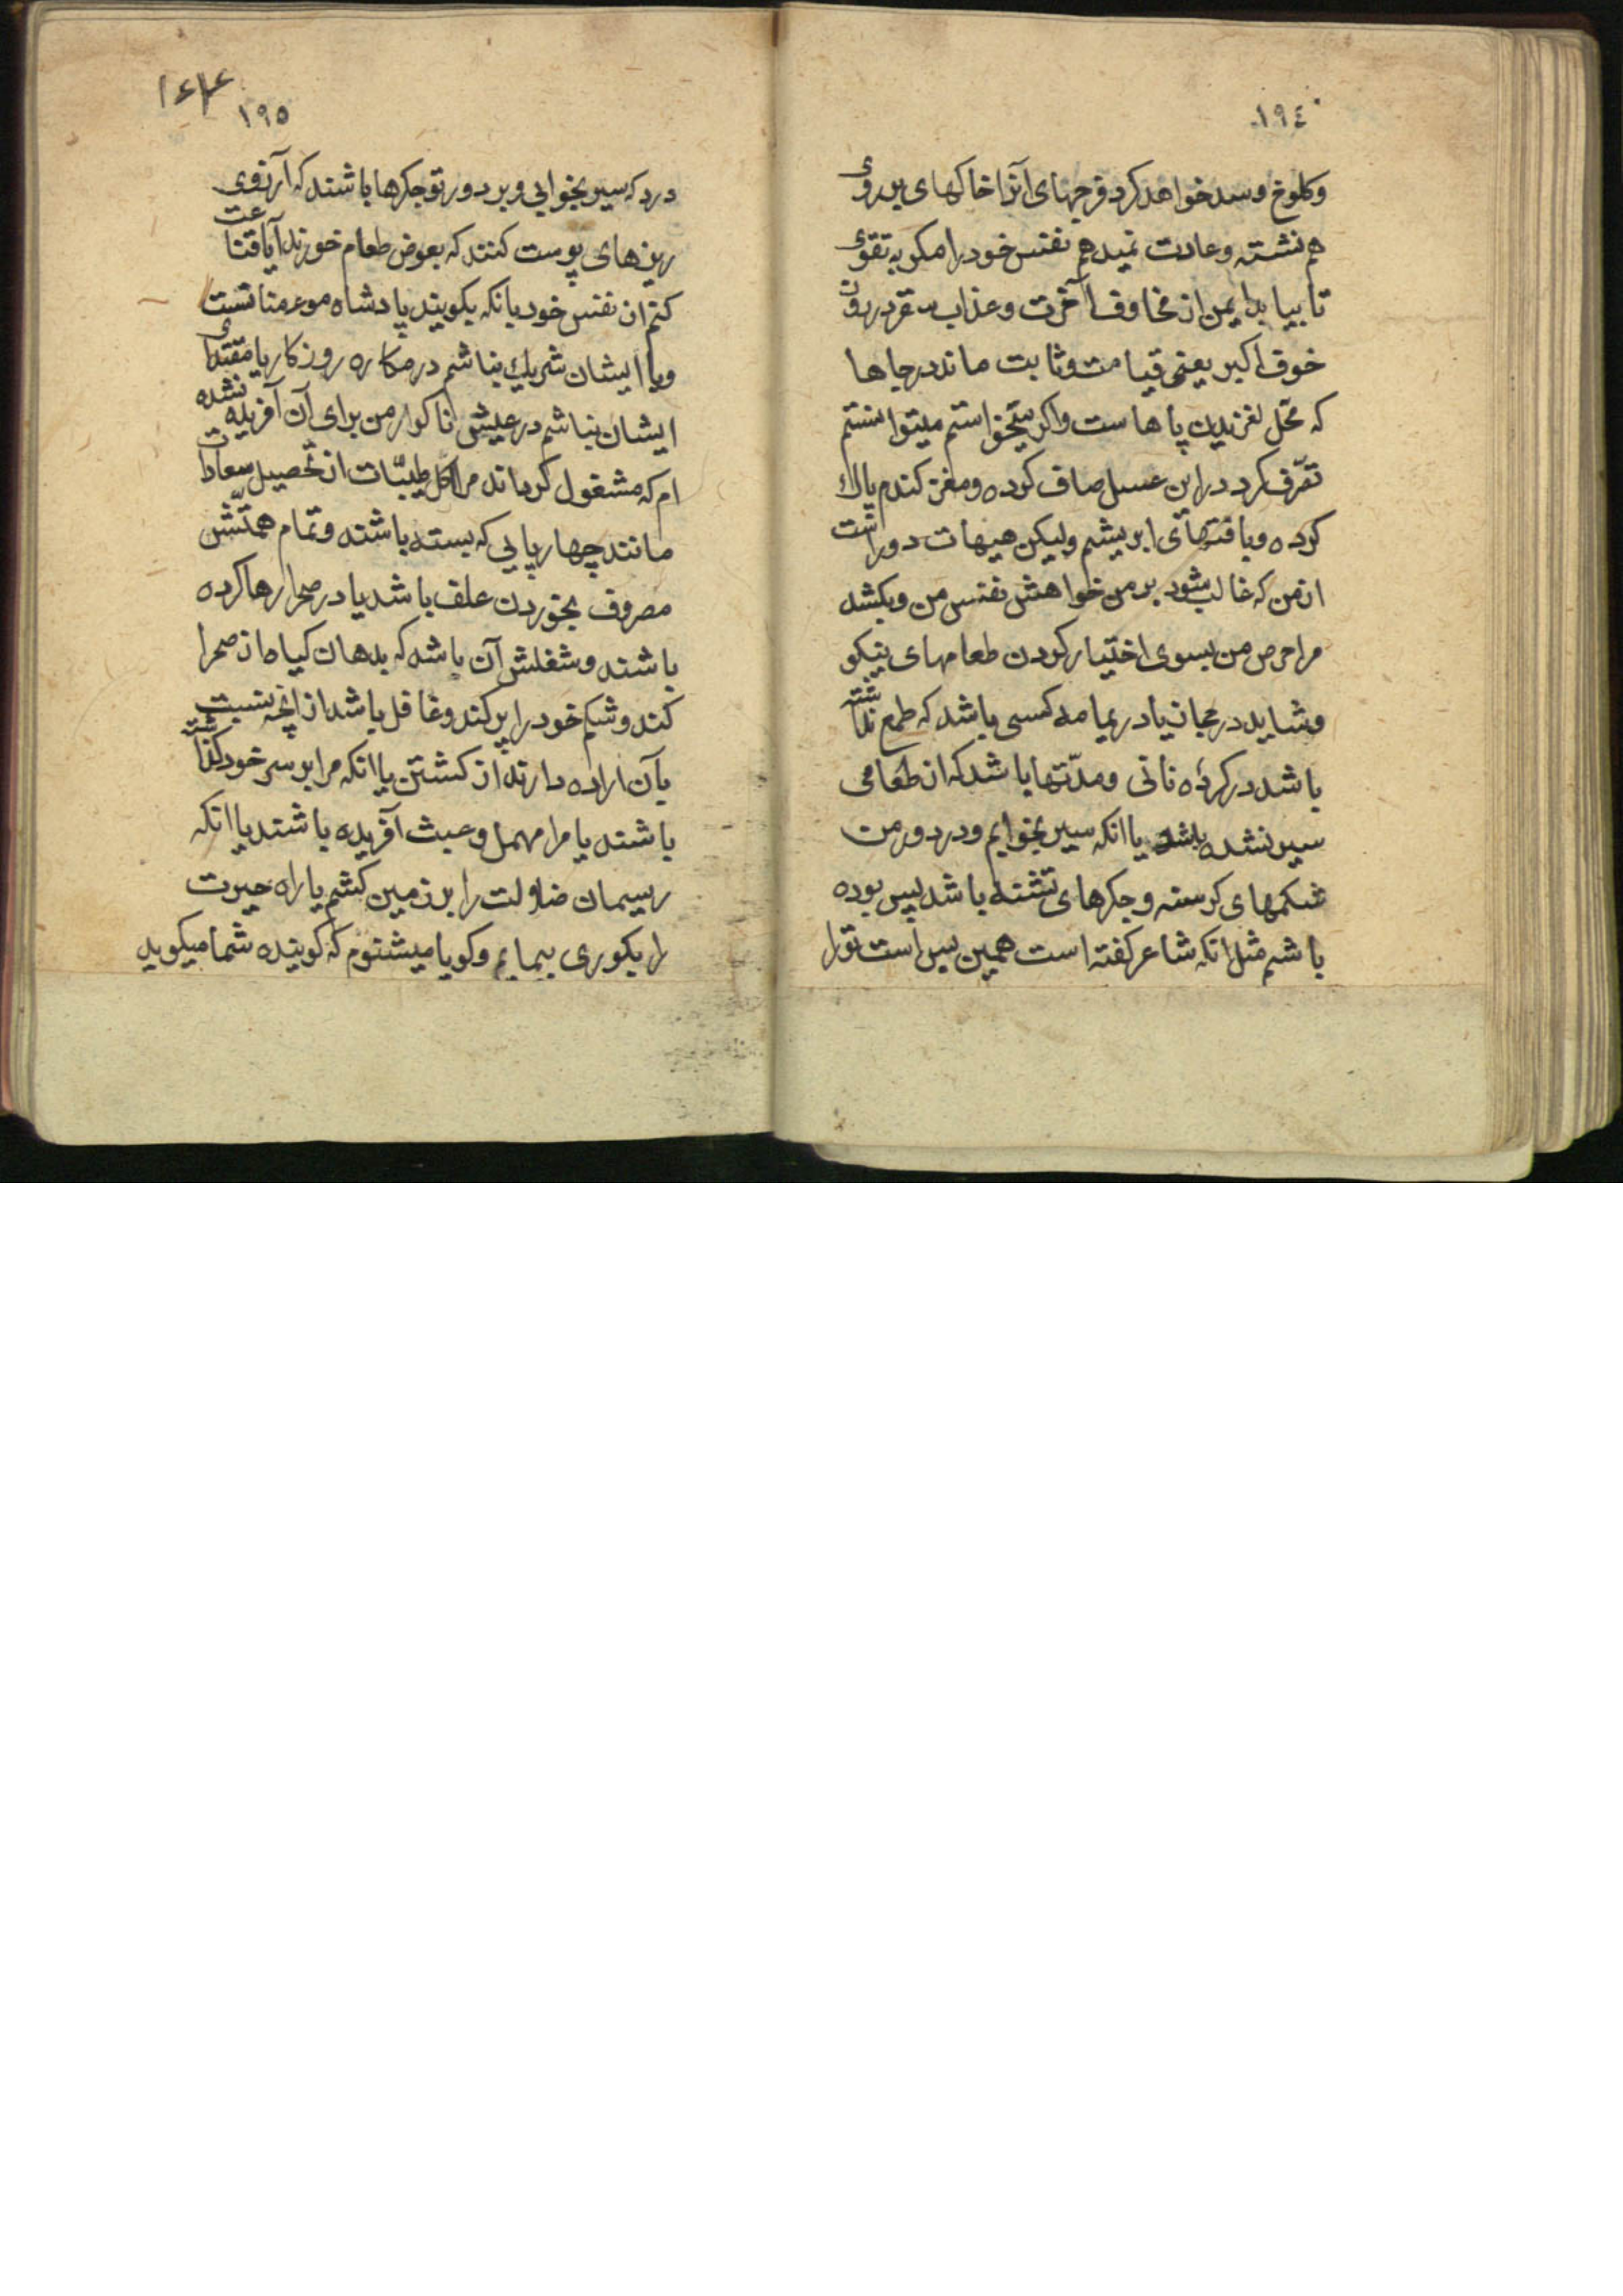 ١٩٤
وکلوخ وسد خواهد کرد فرجهای انرا خاکهای بر روی
هم نشسته وعادت نمیدهم نفس خود را مکر به تقوی
تا بیاید ایمن از مخاوف آخرت وعذاب سقر در روز
خوف اکبر یعنی قیامت وثابت ماند در جاها
که محل لغزیدن پاهاست واکر میخواستم میتوانستم
تصرف کرد در این عسل صاف کرده ومغز کندم پاک
کرده وبافتهای ابریشم ولیکن هیهات دور است
از من که غالب شود بر من خواهش نفس من وبکشد
مرا حرص من بسوی اختیار کردن طعامهای نیکو
وشاید در حجاز یا در یمامه کسی باشد که طمع نداشته
باشد در کرده نانی ومدتها باشد که از طعامی
سیر نشده باشد یا انکه سیر بخوابم ودر دور من
شکمهای کرسنه وجکرهای تشنه باشد پس بوده
باشم مثل انکه شاعر کفته است همین بس است تو را
١٩٥
درد که سیر بخوابی وبر دور تو جکرها باشند که آرزوی
ریزهای پوست کنند که بعوض طعام خورند آیا قناعت
کنم از نفس خود بانکه بکویند پادشاه مومنانست
وبا ایشان شریک نباشم در مکاره روزکار یا مقتدای
ایشان نباشم در عیش ناکوار من برای آن آفریده نشده
ام که مشغول کرداند مرا اکل طیبات از تحصیل سعادات
مانند چهارپایی که بسته باشند وتمام همتش
مصروف بخوردن علف باشد یا در صحرا رها کرده
باشند وشغلش آن باشد که بدهان کیاه از صحرا
کند وشکم خود را پر کند وغافل باشد از انچه نسبت
بآن اراده دارند از کشتن یا انکه مرا بر سر خود کذاشته
باشند یا مرا مهمل وعبث آفریده باشند یا انکه
ریسمان ضلالت را بر زمین کشم یا راه حیرت
را بکوری بپیمایم وکویا میشنوم که کوینده شما میکوید